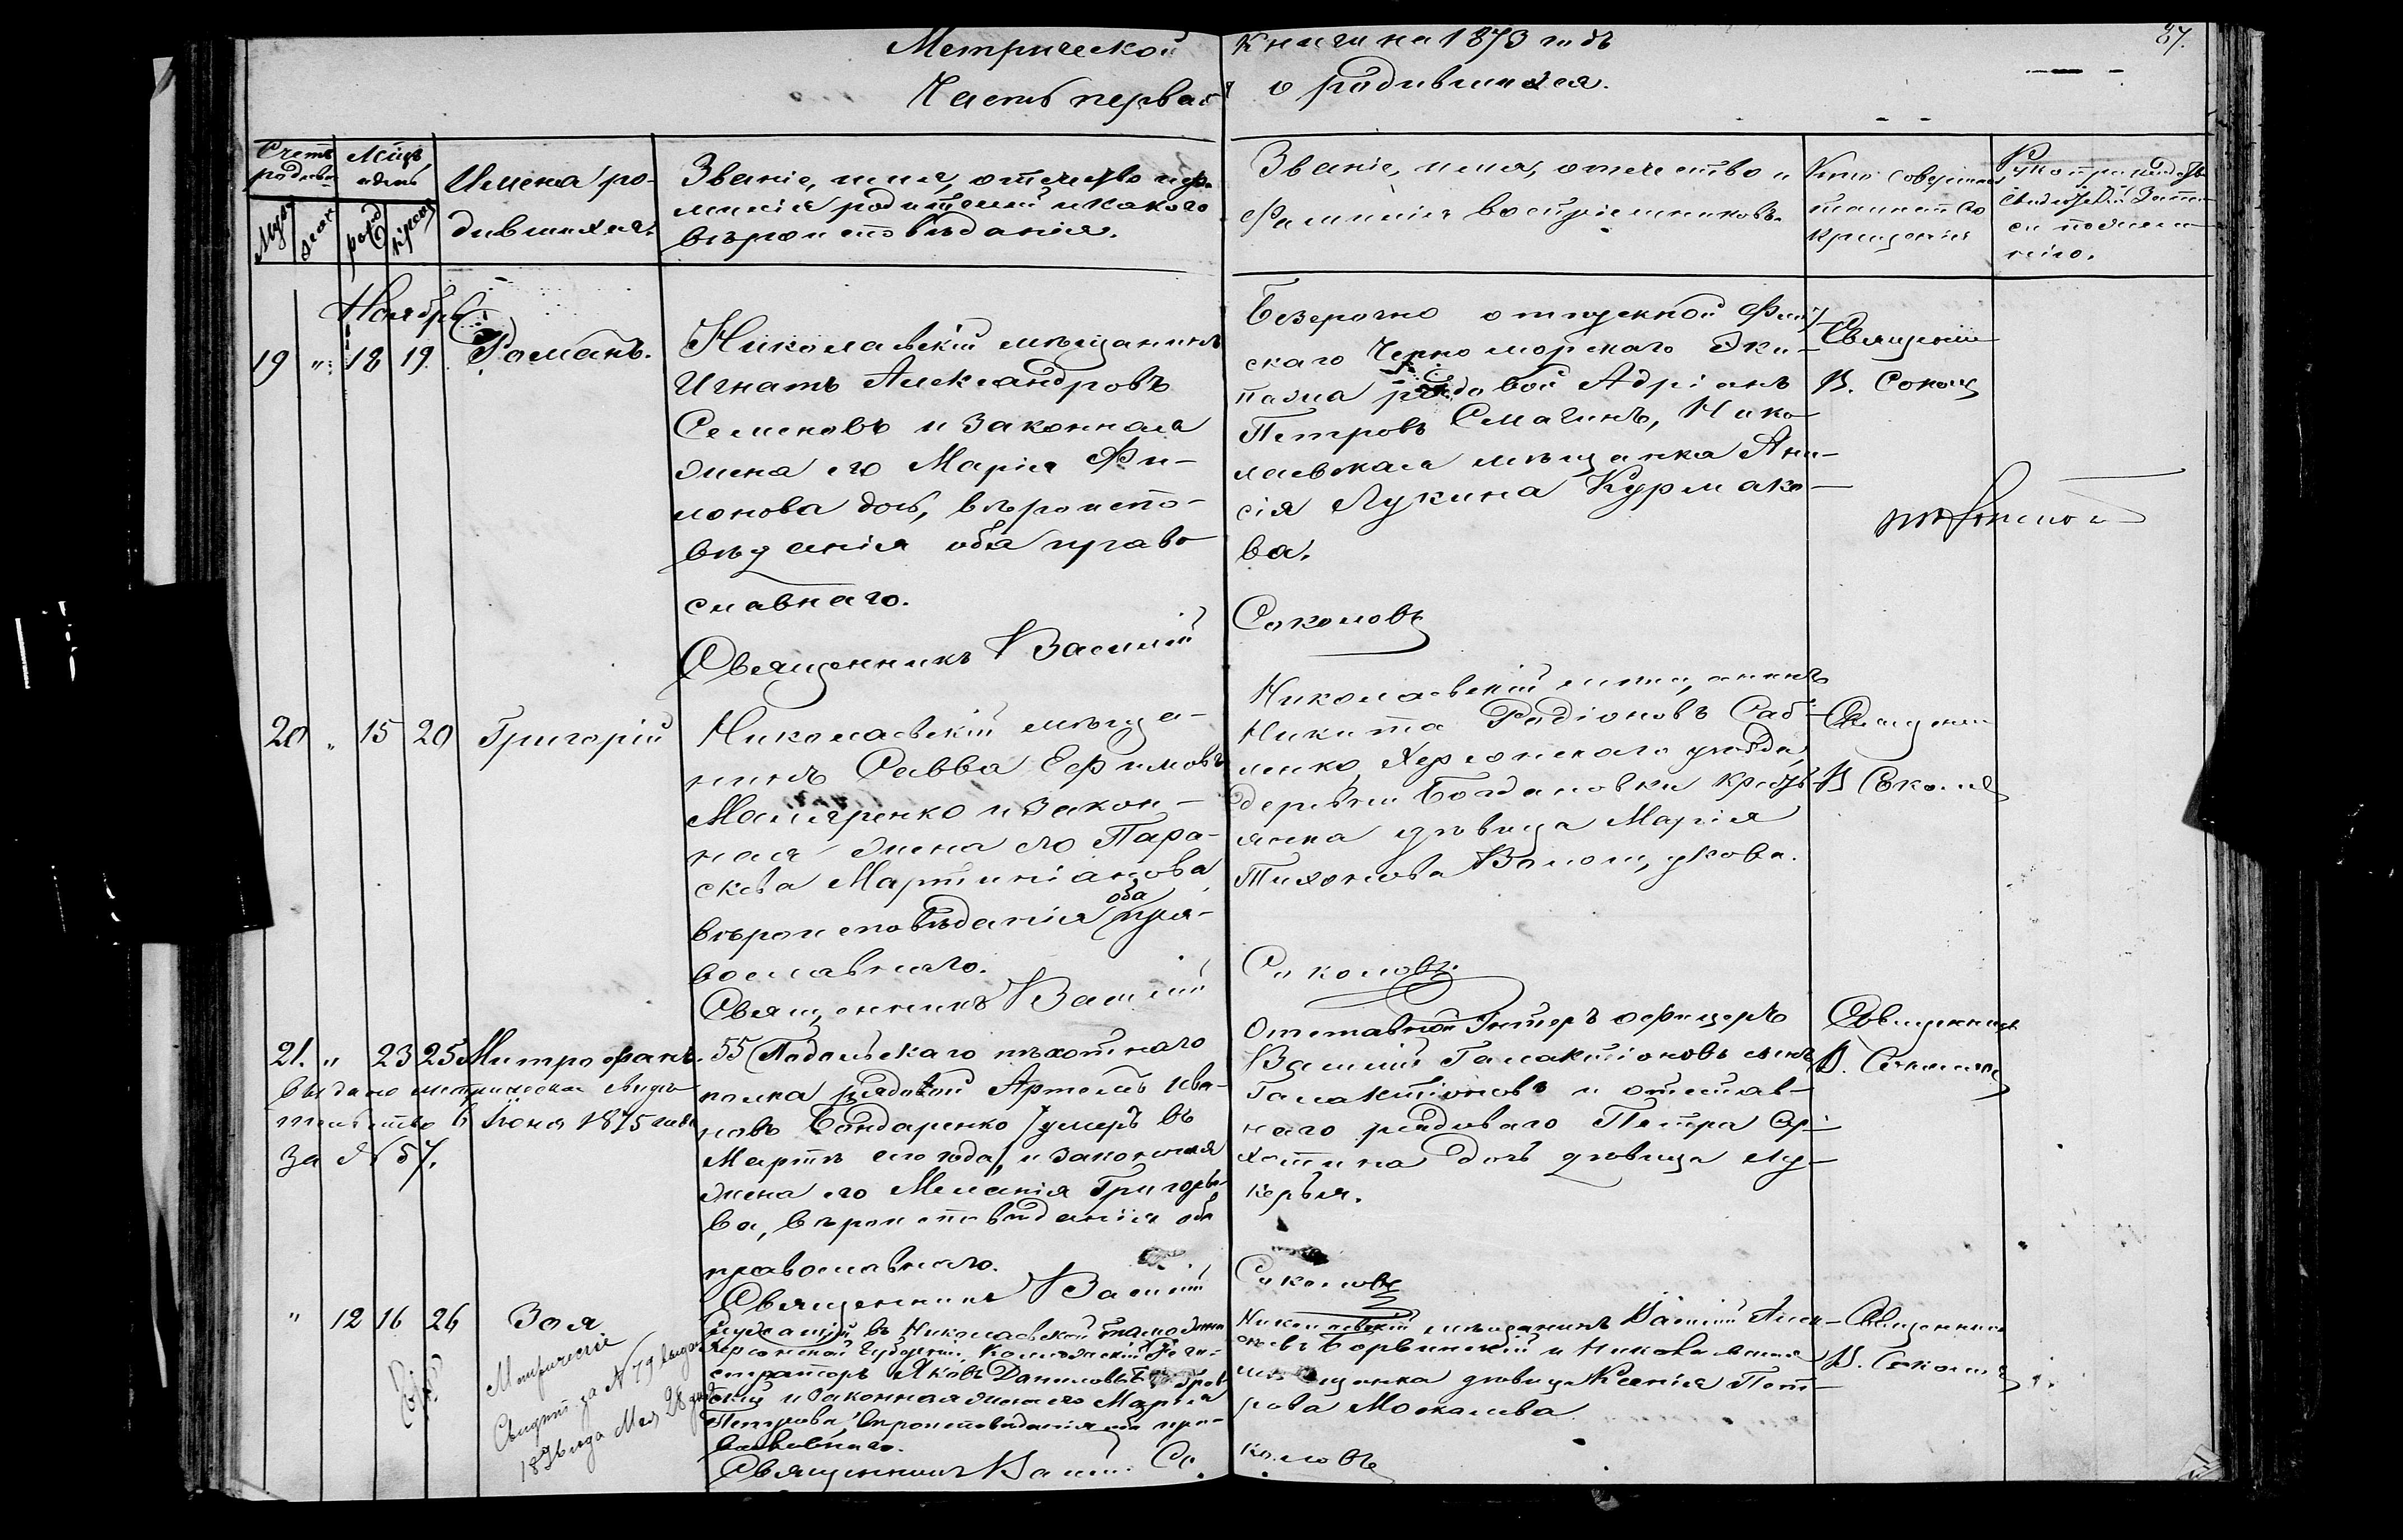 Метрической книги на 1873 годъ
87.
Часть первая о родившихся.
Счетъ родив
Мцъ и день
Имена ро-
дившихся.
Званіе, имя, отечество и фа-
милія родителей и какого
вѣроисповѣданія.
Званіе, имя, отечество и
Фамилія воспріемниковъ.
Кто совершалъ
таинство
крещенія
Рукоприкладств
свидѣтелей запи-
си по желанію.
Ноябрь
19 " 18 19 Романъ.
Николаевскій мѣщанинъ
Игнатъ Александровъ
Семеновъ и законная
жена его Марія Фи-
монова дочь, вѣроиспо-
вѣданія оба право-
славнаго.
Священникъ Василій
Безсрочно отпускной
скаго Черноморскаго Эки-
пажа рядовой Адріанъ
Петровъ Смагинъ, Нико-
лаевская мѣщанка Ани-
сія Лукина Курмако-
ва.
Соколовъ
Священникъ
В. Соколовъ
20 " 15 20 Григорій
Николаевскій мѣща-
нинъ Савва Ефимовъ
Маляренко и закон-
ная жена его Пара-
скева Мартиніанова
вѣроисповѣданія оба пра-
вославнаго.
Священникъ Василій
Николаевскій мѣщанинъ
Никита Радіоновъ Саб-
ленко, Херсонскаго уѣзда,
деревни Богдановки кресть
янка дѣвица Марія
Тихонова Волощукова.
Соколовъ
Священни
В Соколов
21. " 23 25 Митрофанъ.
Выдано метрическое свидѣ-
тельство 6 Іюня 1875 года
за № 57.
55 Подольскаго пѣхотнаго
полка рядовой Артемъ Ива-
новъ Бондаренко /умеръ въ
Мартѣ сего года/ и законная
жена его Меланія Григорье-
ва, вѣроисповѣданія оба
православнаго.
Священникъ Василій
Отставной Унтеръ офицеръ
Василій Галактіоновъ сынъ
Галактіоновъ и отстав-
наго рядоваго Петра
дочь дѣвица Лу-
керья.
Соколовъ
Священникъ
В. Соколовъ
" 12 16 26 Зоя
Метрическое
Свидѣт. за № 79 выдан
187 года Мая 28 дня
Служащій въ Николаевской таможни
Херсонской Губерніи Коллежскій Реги-
страторъ Яковъ Даниловъ
и законная жена его Марія
Петрова, вѣроисповѣданія оба пра-
вославнаго.
Священникъ Васил. Со
Николаевскій мѣщанинъ Василій
и Николаевская
мѣщанка дѣвица Ксенія Пет-
рова Москалева.
коловъ
Священникъ
В. Соколовъ